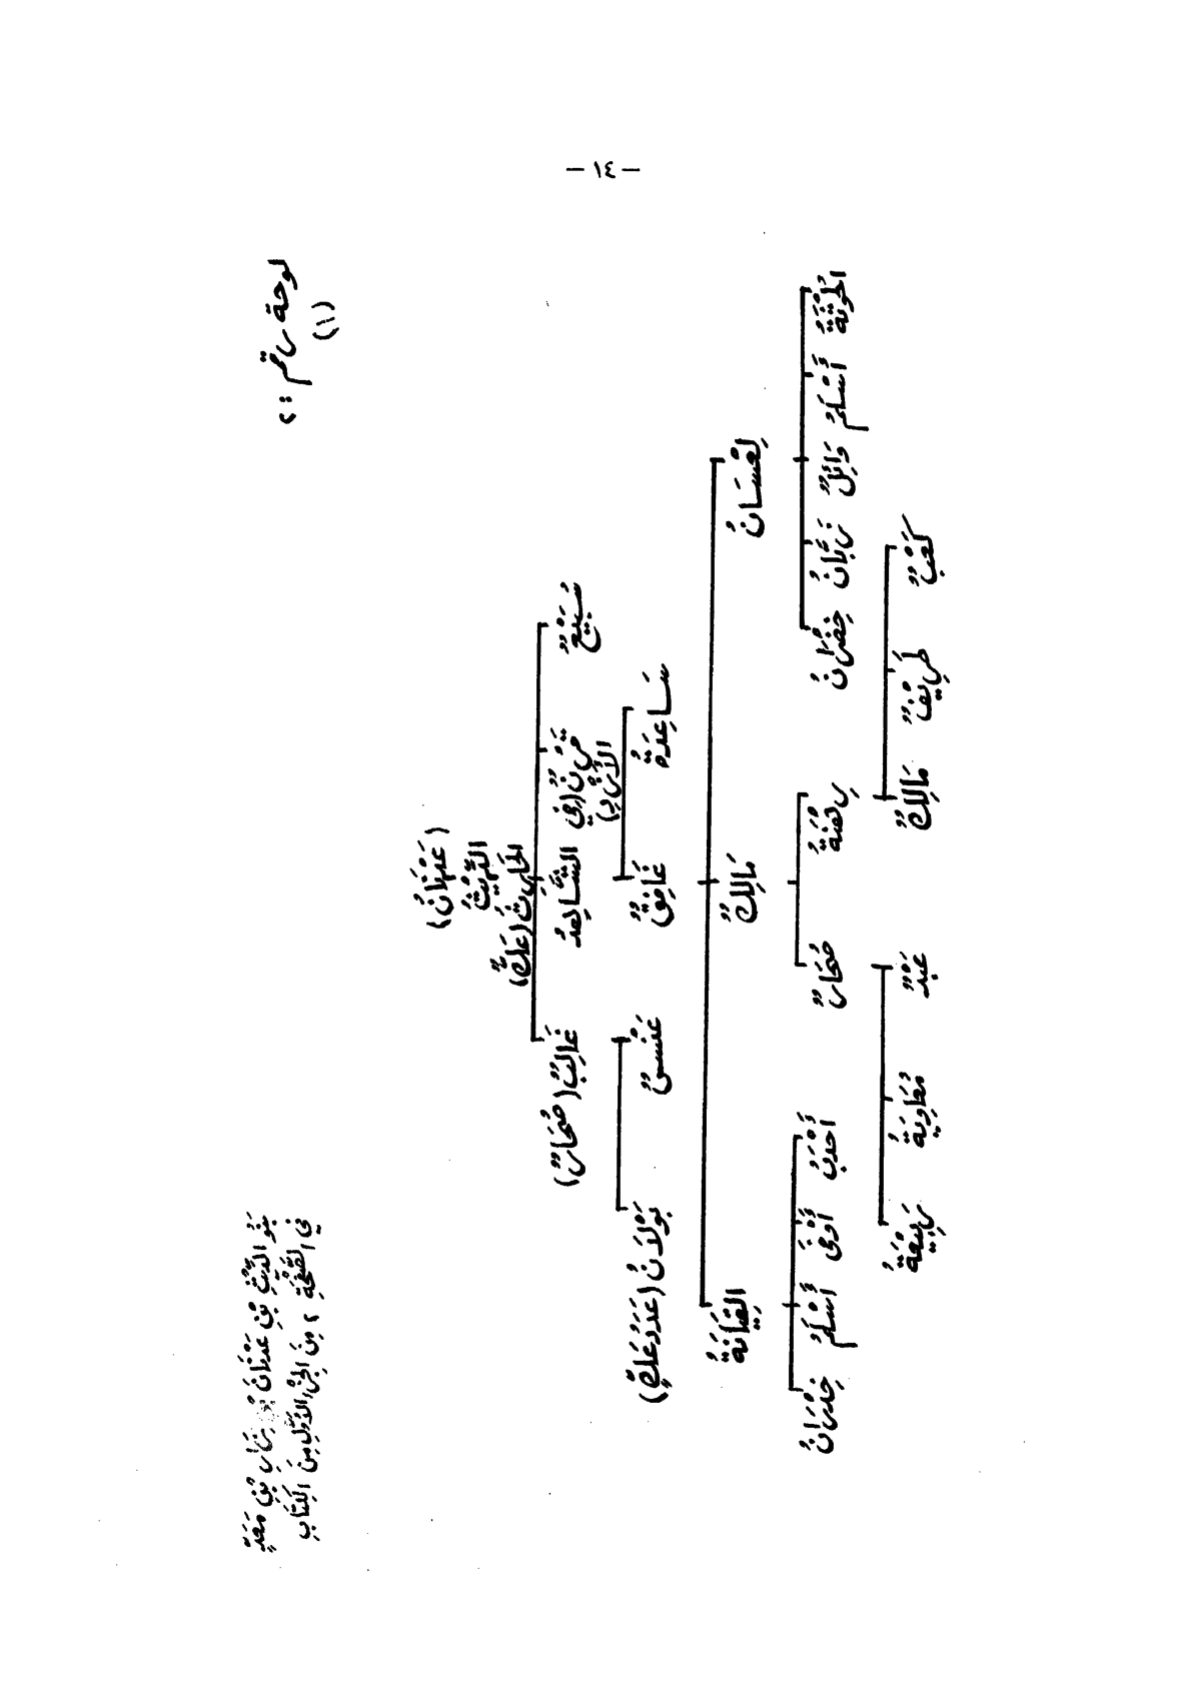 – ١٤ –
لوحة رقم : ٢
(١)
بَنُو الدِّيثِ بْنِ عَدْنَانَ
نِزَارِ بْنِ مَعَدٍّ
فِي الصَّفْحَةِ ٢ مِنَ الجُزْءِ الأَوَّلِ مِنَ الكِتَابِ
(عَدْنَانُ)
الدِّيثُ
الحَارِثُ (عَكٌّ)
سُبَيْعٌ
قَرْنٌ (فِي
الأَزْدِ)
الشَّاهِدُ
غَالِبٌ (صُحَارٌ)
سَاعِدَةُ
غَافِقٌ
عَنْسٌ
بَوْلَانُ (عَدَدُ عَكٍّ)
لِعْسَانُ
مَالِكٌ
القِيَانَةُ
الحُوْثَةُ
أَسْلَمُ
وَائِلٌ
زَبَّانُ
خِضْرَانُ
رِهْنَةُ
صُحَارٌ
أَحْدَبُ
أَوْفَى
أَسْلَمُ
خِدْرَانُ
كَعْبٌ
طَرِيفٌ
مَالِكٌ
عَبْدٌ
مُعَاوِيَةُ
رَبِيعَةُ